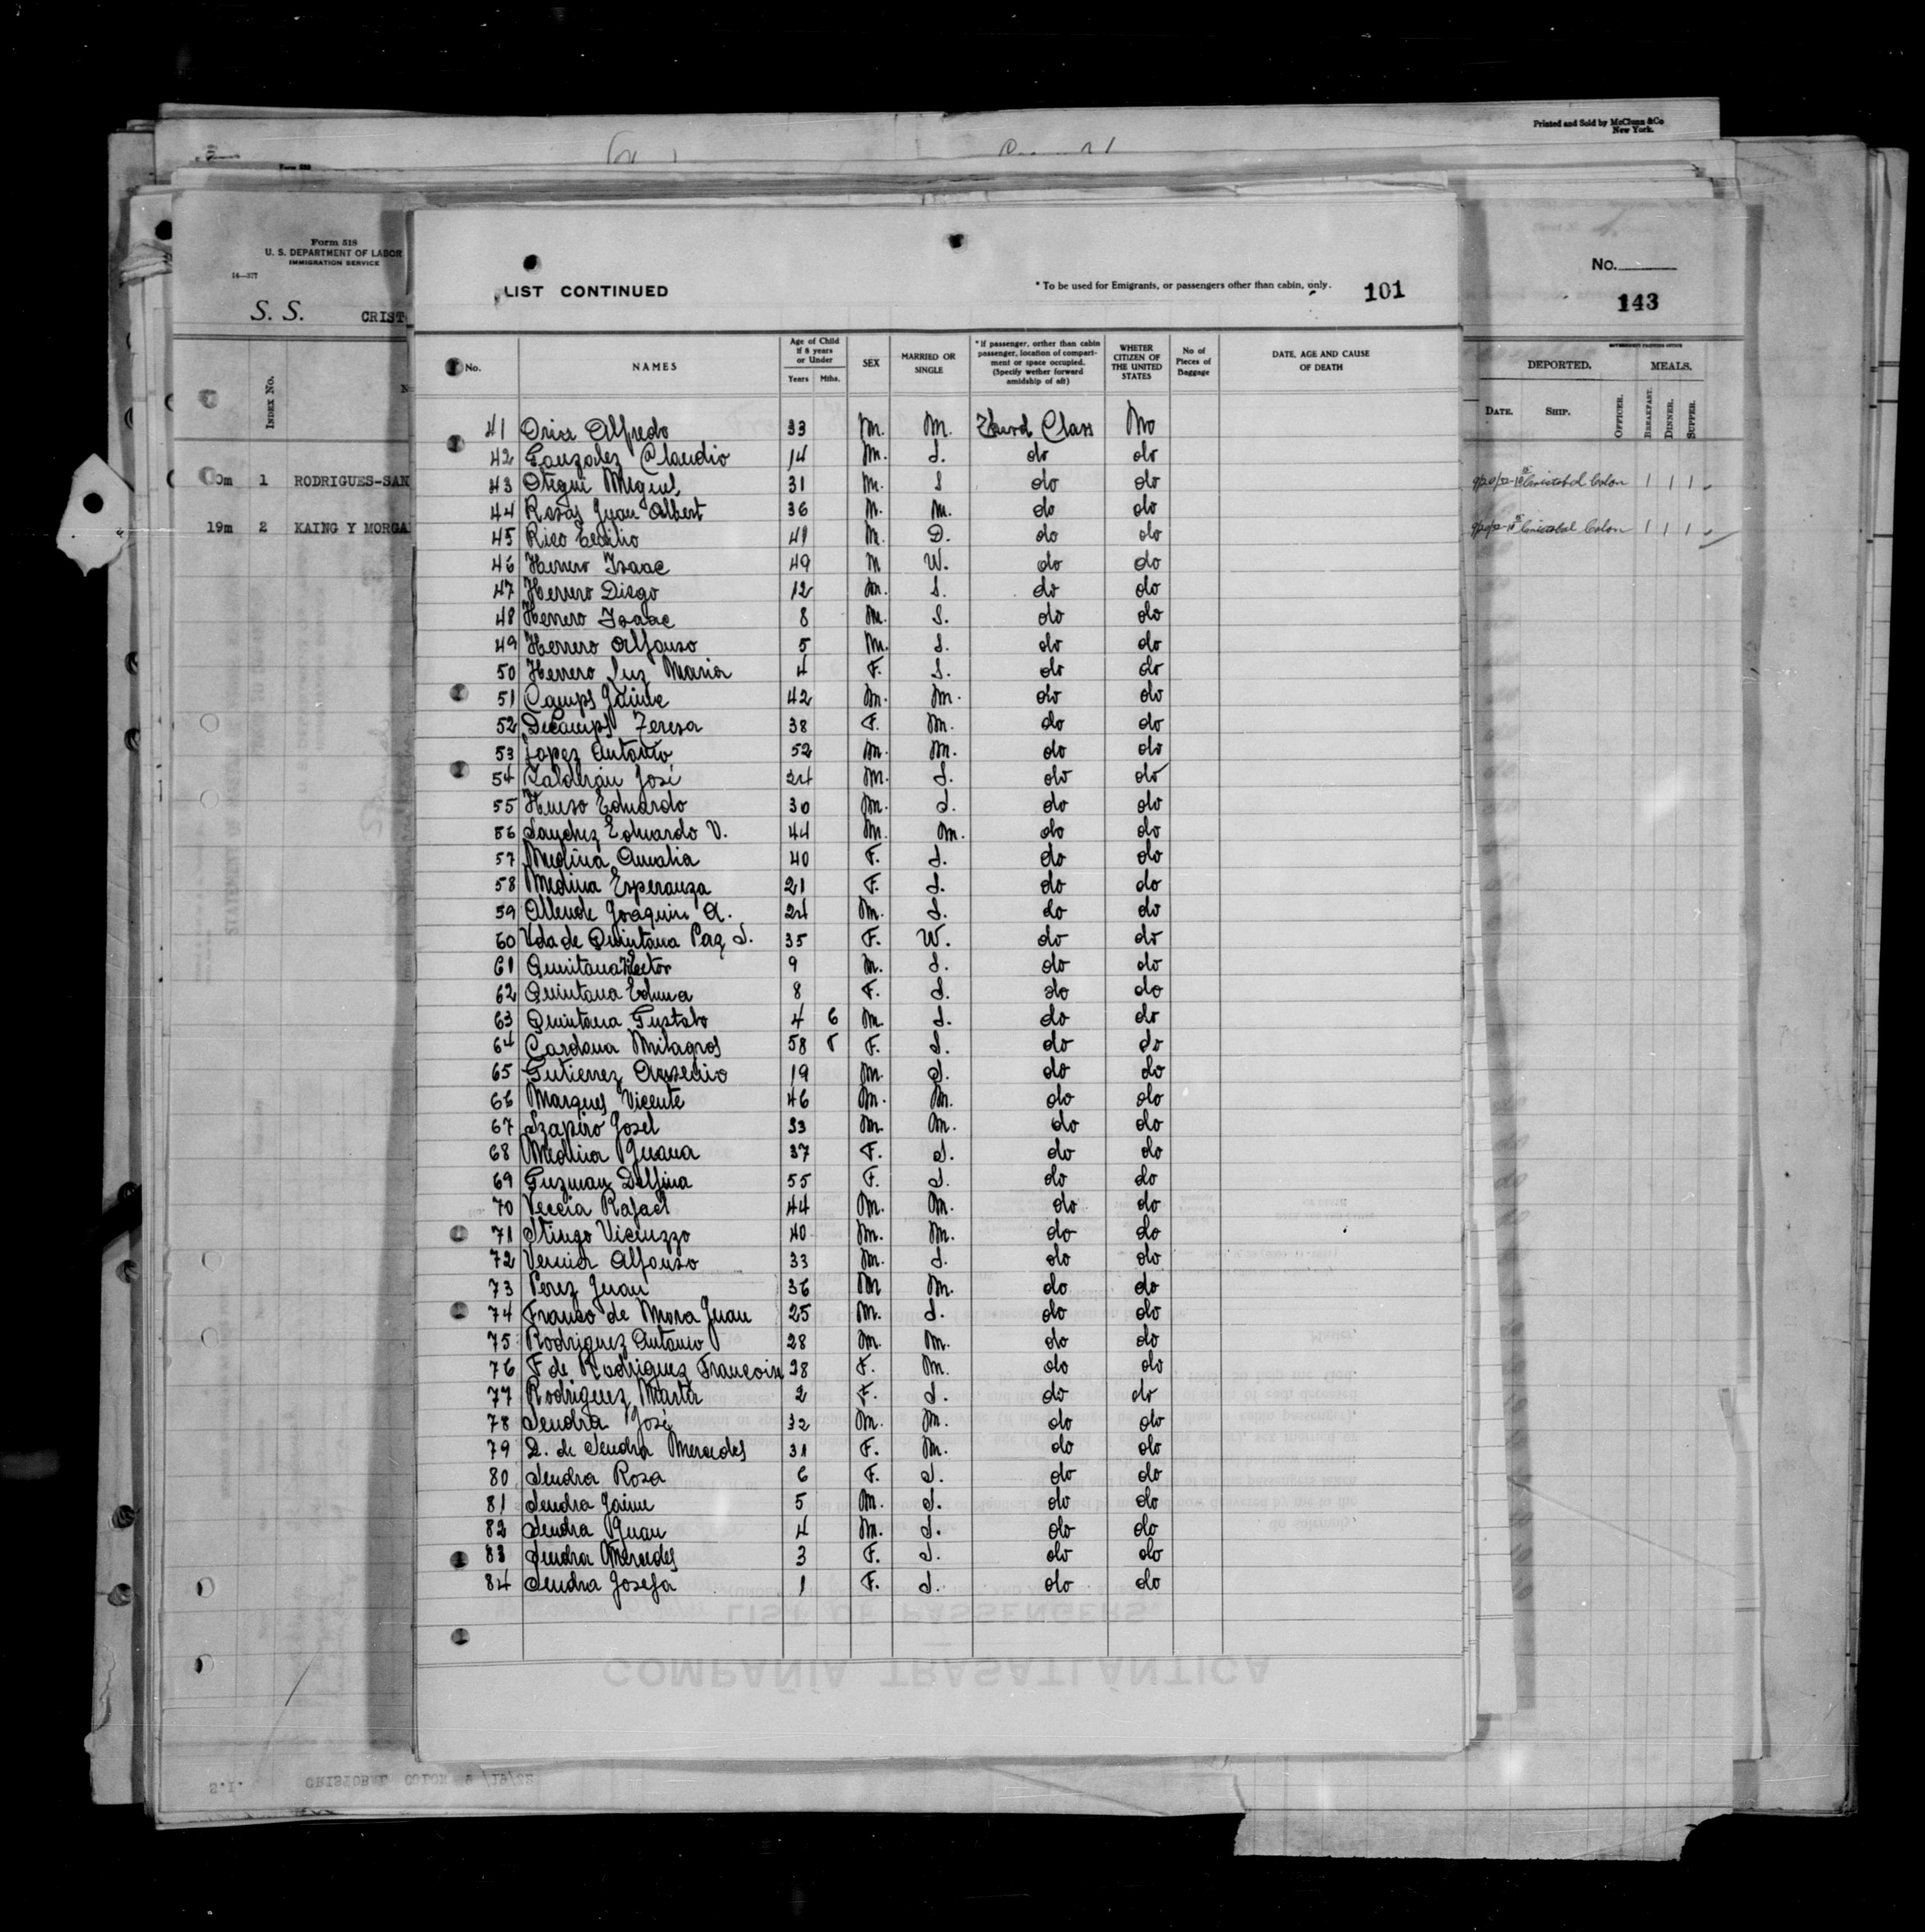 Printed and Sold by McClunn & Co
New York.
Form 518
U. S. DEPARTMENT OF LABOR
IMMIGRATION SERVICE
16—377
S. S. CRIST
INDEX No.
1 RODRIGUES-SAN
19m 2 KAING Y MORGA
LIST CONTINUED
* To be used for Emigrants, or passengers other than cabin, only. 101
No.
NAMES
Age of Child if 8 years or Under
Years Mths.
SEX
MARRIED OR SINGLE
* If passenger, orther than cabin passenger, location of compartment or space occupied. (Specify wether forward amidship of aft)
WHETER CITIZEN OF THE UNITED STATES
No of Pieces of Baggage
DATE, AGE AND CAUSE OF DEATH
41 Alfredo 33 M. M. Third Class No
42 Gonzalez Claudio 14 M. S. do do
43 Otegui Miguel 31 M. S do do
44 Rosas Juan Albert 36 M. M. do do
45 Rico Cecilio 41 M. D. do do
46 Herrero Isaac 49 M W. do do
47 Herrero Diego 12 M. S. do do
48 Herrero Isaac 8 M. S. do do
49 Herrero Alfonso 5 M. S. do do
50 Herrero Luz Maria 4 F. S. do do
51 Camps Jaime 42 M. M. do do
52 DeCamps Teresa 38 F. M. do do
53 Lopez Antonio 52 M. M. do do
54 Calderón José 24 M. S. do do
55 Hueso Eduardo 30 M. S. do do
56 Sanchez Eduardo V. 44 M. M. do do
57 Medina Amalia 40 F. S. do do
58 Medina Esperanza 21 F. S. do do
59 Allende Joaquin A. 24 M. S. do do
60 Vda de Quintana Paz S. 35 F. W. do do
61 Quintana Hector 9 M. S. do do
62 Quintana Edma 8 F. S. do do
63 Quintana Gustabo 4 6 M. S. do do
64 Cardona Milagros 58 F. S. do do
65 Gutierrez Arsenio 19 M. S. do do
66 Marques Vicente 46 M. M. do do
67 Szapiro Josel 33 M. M. do do
68 Medina Juana 37 F. S. do do
69 Guzman Delfina 55 F. S. do do
70 Veccia Rafael 44 M. M. do do
71 Stingo Vicenzzo 40 M. M. do do
72 Alfonso 33 M. S. do do
73 Perez Juan 36 M M. do do
74 Franco de Mora Juan 25 M. S. do do
75 Rodriguez Antonio 28 M. M. do do
76 F de Rodriguez Francoise 28 F. M. do do
77 Rodriguez Marta 2 F. S. do do
78 Sendra José 32 M. M. do do
79 D. de Sendra Mercedes 31 F. M. do do
80 Sendra Rosa 6 F. S. do do
81 Sendra Jaime 5 M. S. do do
82 Sendra Juan 4 M. S. do do
83 Sendra Mercedes 3 F. S. do do
84 Sendra Josefa 1 F. S. do do
No.
143
DEPORTED. MEALS.
DATE. SHIP. OFFICER. BREAKFAST. DINNER. SUPPER.
Cristobal Colon 1 1 1
Cristobal Colon 1 1 1
LIST OF PASSENGERS
COMPAÑÍA TRASATLÁNTICA
S.I. CRISTOBAL COLON 9/19/22